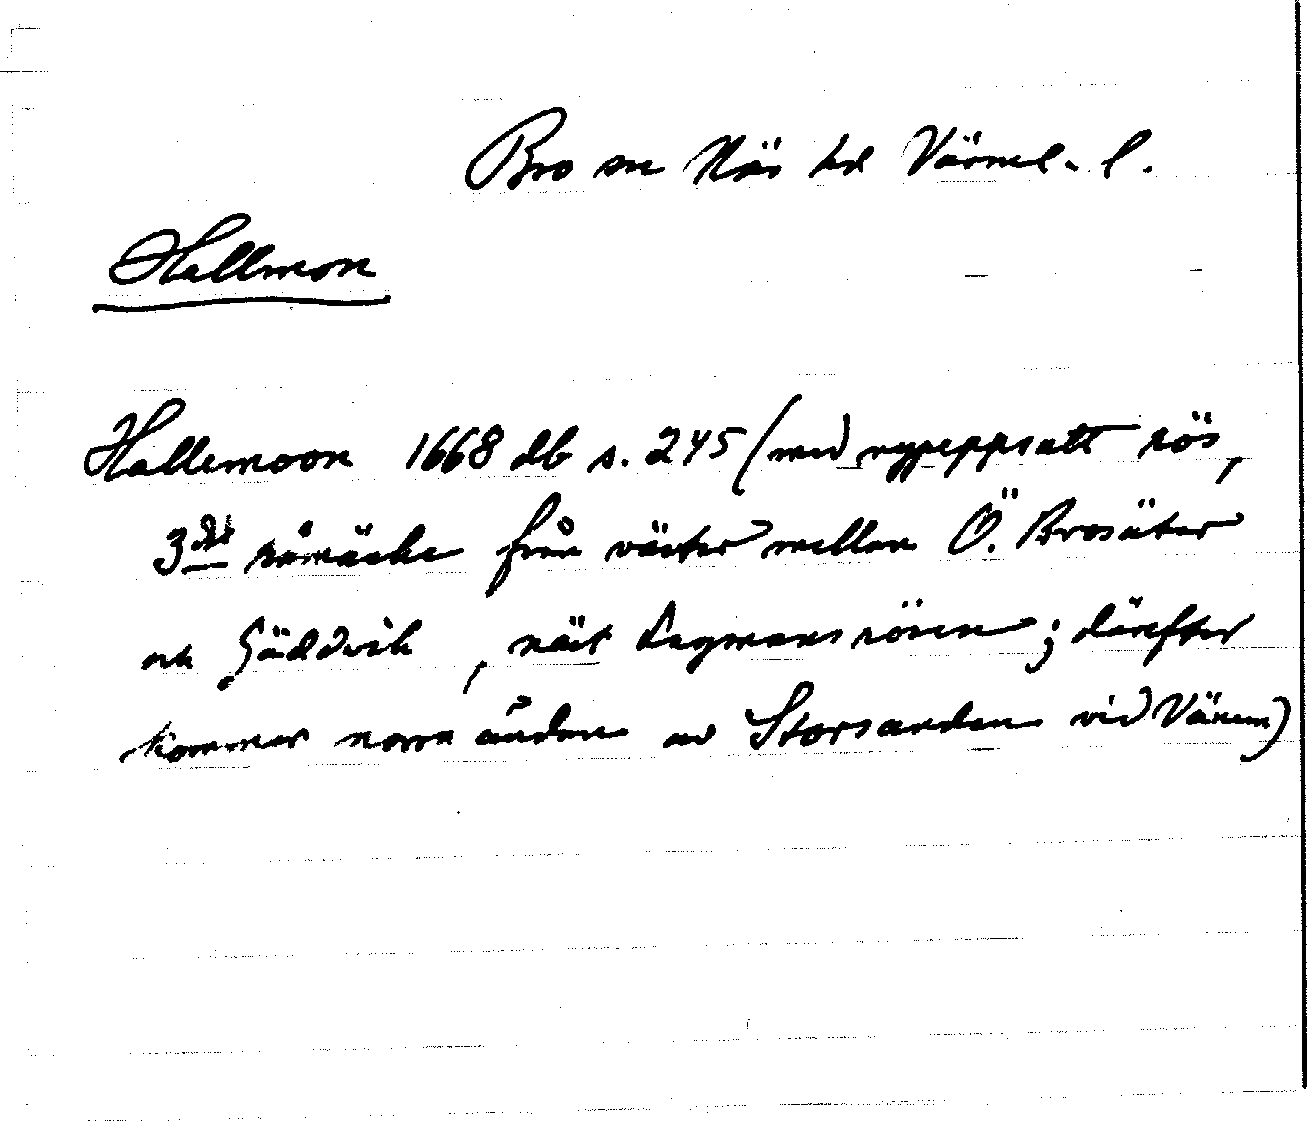 Bro sn Näs hd Värml. l.
Hallmon
Hallemoon 1668 db s. 245 (med nyuppsatt rös,
3dje råmärke från väster mellan Ö. Brosäter
och Gäddvik, näst Lagmansrösen; därefter
kommer norra änden av Storsanden vid Vänern)